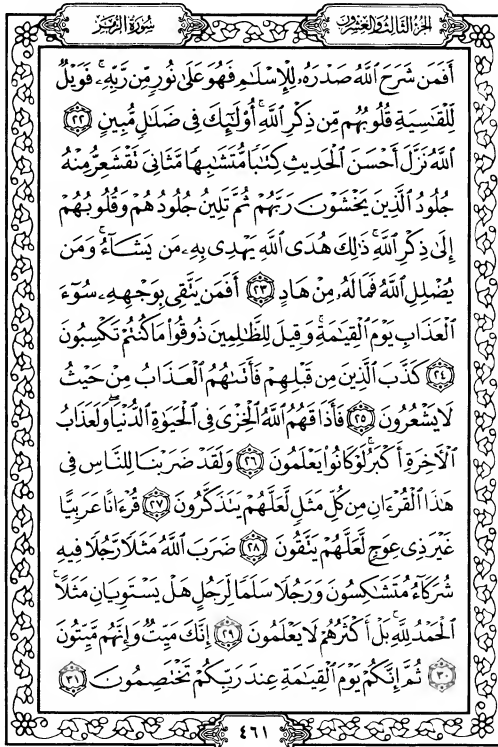 سُورَةُ الزُّمَرِ
الجُزْءُ الثَّالِثُ وَالعِشْرُونَ
أَفَمَن شَرَحَ ٱللَّهُ صَدْرَهُۥ لِلْإِسْلَٰمِ فَهُوَ عَلَىٰ نُورٍ مِّن رَّبِّهِۦۚ فَوَيْلٌ
لِّلْقَٰسِيَةِ قُلُوبُهُم مِّن ذِكْرِ ٱللَّهِۚ أُو۟لَٰٓئِكَ فِى ضَلَٰلٍ مُّبِينٍ ٢٢
ٱللَّهُ نَزَّلَ أَحْسَنَ ٱلْحَدِيثِ كِتَٰبًا مُّتَشَٰبِهًا مَّثَانِىَ تَقْشَعِرُّ مِنْهُ
جُلُودُ ٱلَّذِينَ يَخْشَوْنَ رَبَّهُمْ ثُمَّ تَلِينُ جُلُودُهُمْ وَقُلُوبُهُمْ
إِلَىٰ ذِكْرِ ٱللَّهِۚ ذَٰلِكَ هُدَى ٱللَّهِ يَهْدِى بِهِۦ مَن يَشَآءُۚ وَمَن
يُضْلِلِ ٱللَّهُ فَمَا لَهُۥ مِنْ هَادٍ ٢٣ أَفَمَن يَتَّقِى بِوَجْهِهِۦ سُوٓءَ
ٱلْعَذَابِ يَوْمَ ٱلْقِيَٰمَةِۚ وَقِيلَ لِلظَّٰلِمِينَ ذُوقُوا۟ مَا كُنتُمْ تَكْسِبُونَ
٢٤ كَذَّبَ ٱلَّذِينَ مِن قَبْلِهِمْ فَأَتَىٰهُمُ ٱلْعَذَابُ مِنْ حَيْثُ
لَا يَشْعُرُونَ ٢٥ فَأَذَاقَهُمُ ٱللَّهُ ٱلْخِزْىَ فِى ٱلْحَيَوٰةِ ٱلدُّنْيَاۖ وَلَعَذَابُ
ٱلْءَاخِرَةِ أَكْبَرُۚ لَوْ كَانُوا۟ يَعْلَمُونَ ٢٦ وَلَقَدْ ضَرَبْنَا لِلنَّاسِ فِى
هَٰذَا ٱلْقُرْءَانِ مِن كُلِّ مَثَلٍ لَّعَلَّهُمْ يَتَذَكَّرُونَ ٢٧ قُرْءَانًا عَرَبِيًّا
غَيْرَ ذِى عِوَجٍ لَّعَلَّهُمْ يَتَّقُونَ ٢٨ ضَرَبَ ٱللَّهُ مَثَلًا رَّجُلًا فِيهِ
شُرَكَآءُ مُتَشَٰكِسُونَ وَرَجُلًا سَلَمًا لِّرَجُلٍ هَلْ يَسْتَوِيَانِ مَثَلًاۚ
ٱلْحَمْدُ لِلَّهِۚ بَلْ أَكْثَرُهُمْ لَا يَعْلَمُونَ ٢٩ إِنَّكَ مَيِّتٌ وَإِنَّهُم مَّيِّتُونَ
٣٠ ثُمَّ إِنَّكُمْ يَوْمَ ٱلْقِيَٰمَةِ عِندَ رَبِّكُمْ تَخْتَصِمُونَ ٣١
٤٦١